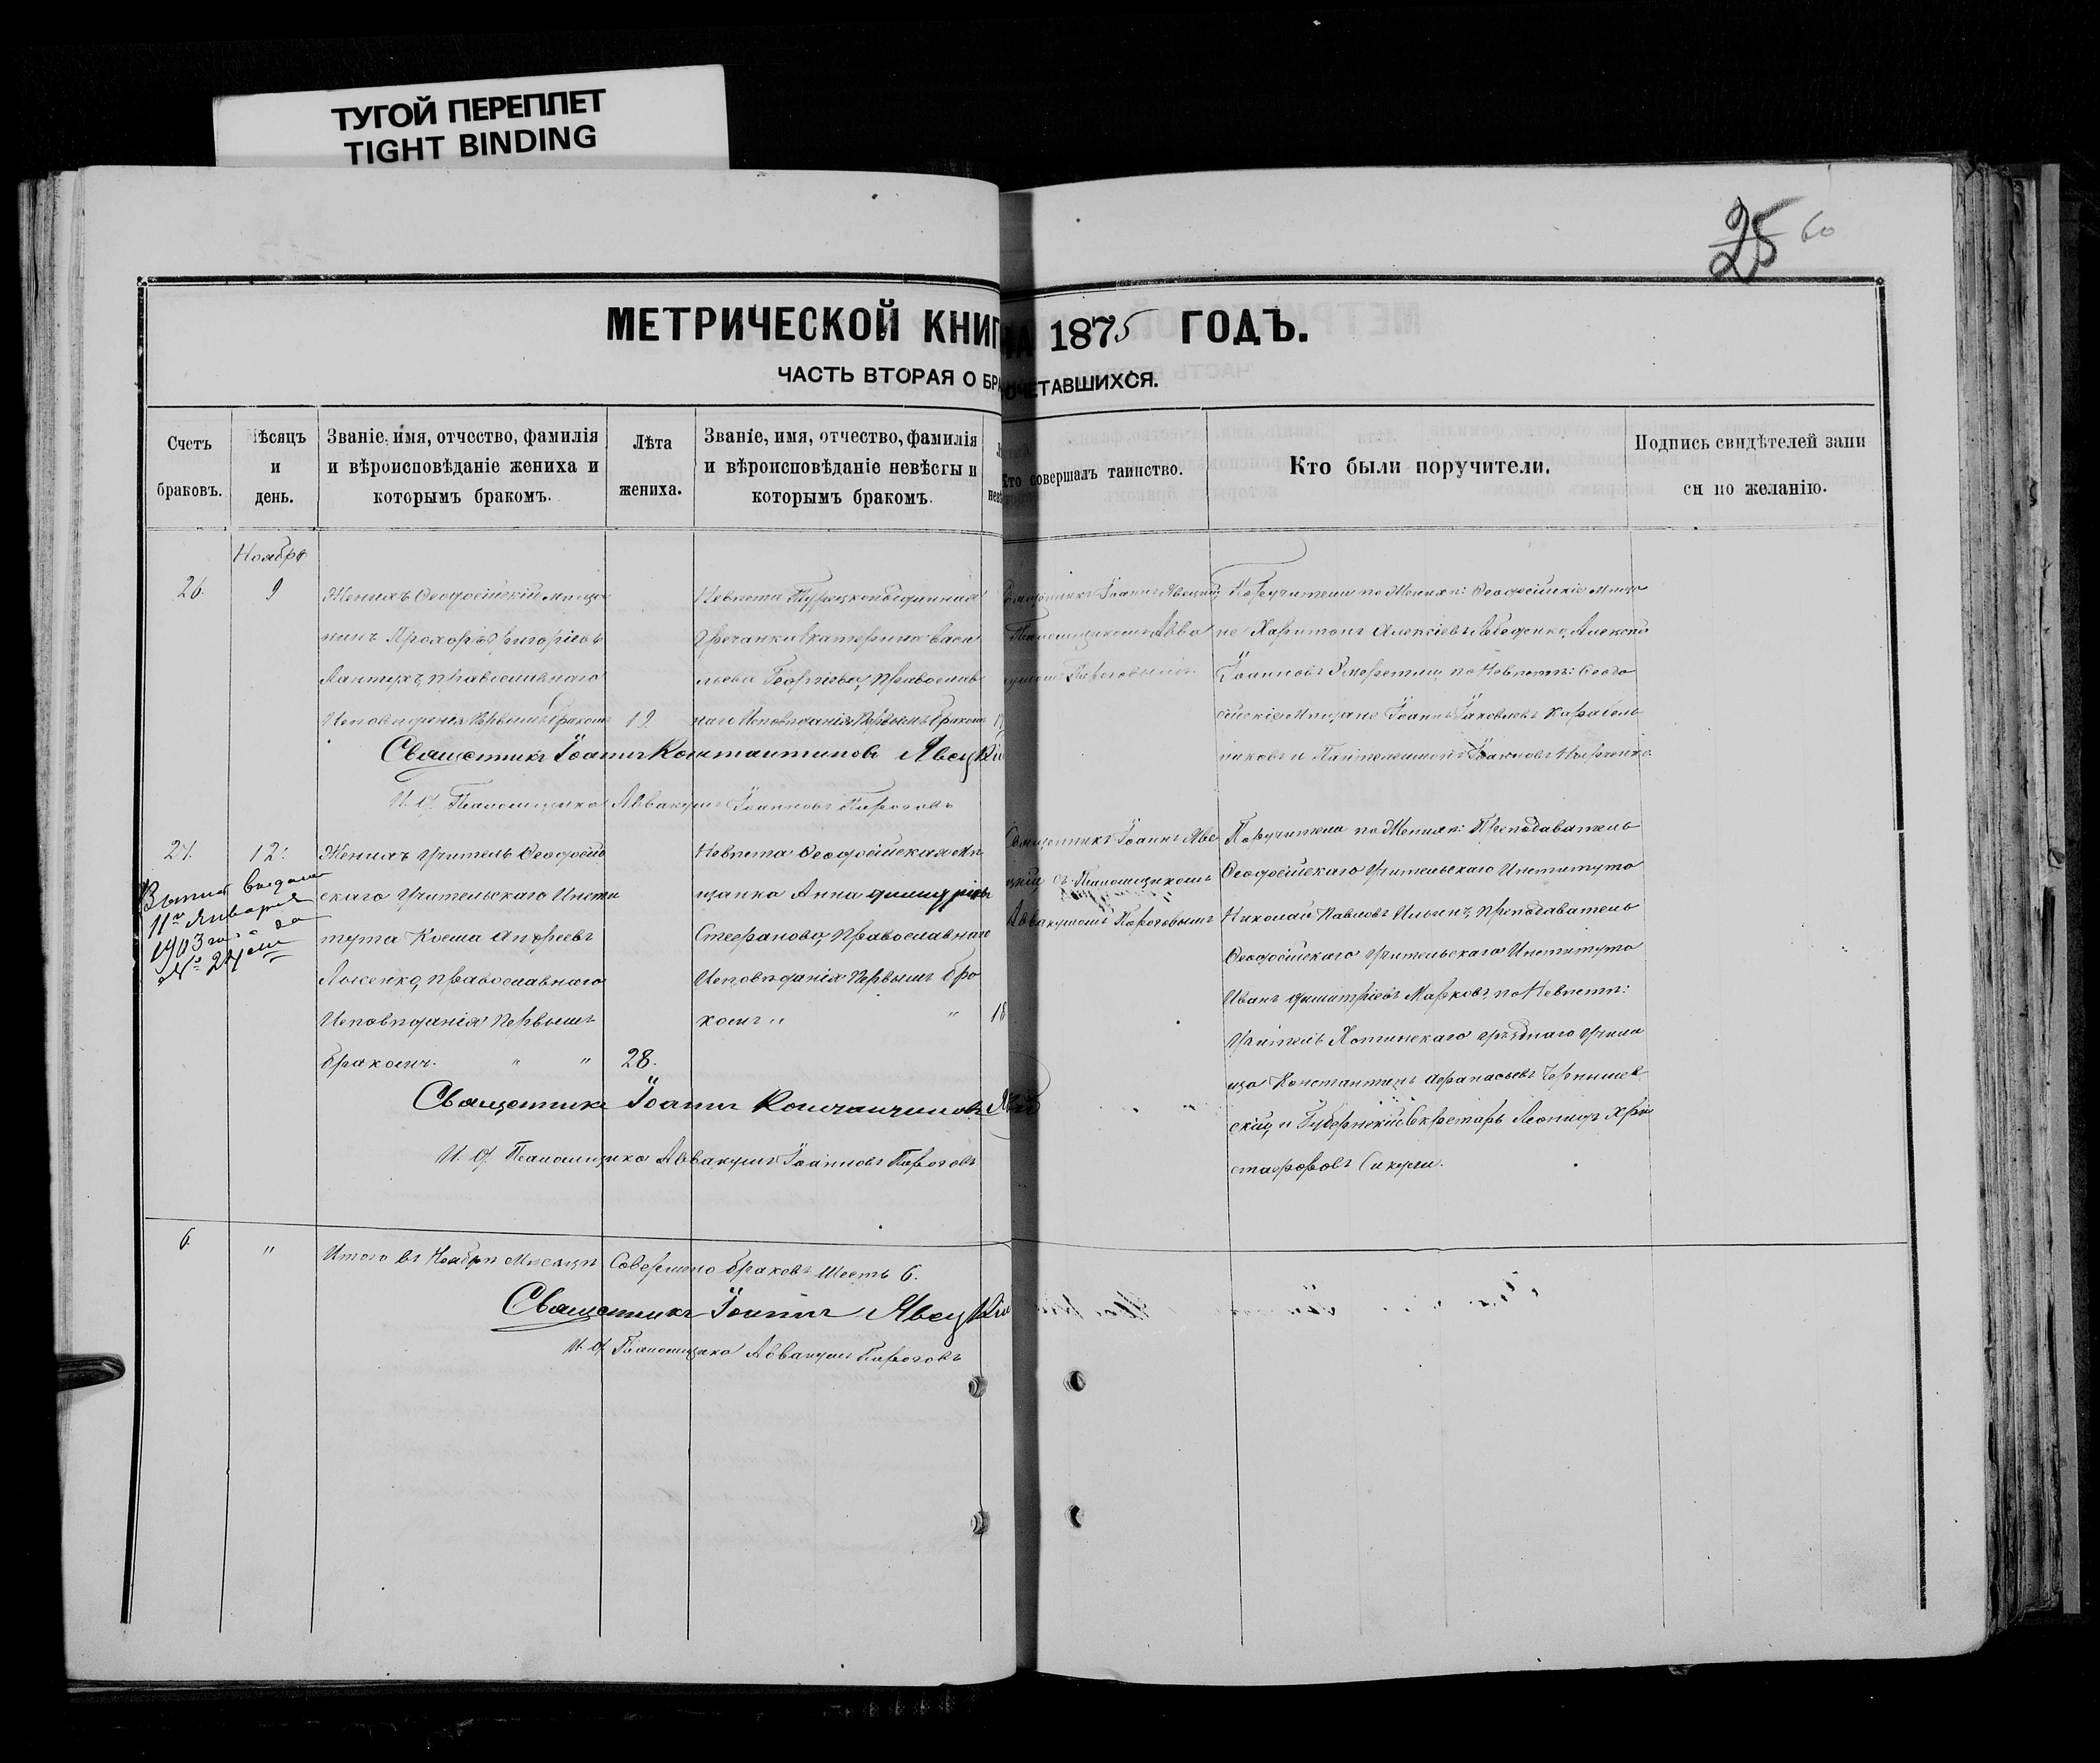 ТУГОЙ ПЕРЕПЛЕТ
TIGHT BINDING
25 60
МЕТРИЧЕСКОЙ КНИГ НА 1875 ГОДЪ.
ЧАСТЬ ВТОРАЯ О БРА ОЧЕТАВШИХСЯ.
Счетъ
браковъ.
Мѣсяцъ
и
день.
Званіе, имя, отчество, фамилія
и вѣроисповѣданіе жениха и
которымъ бракомъ.
Лѣта
жениха.
Званіе, имя, отчество, фамилія
и вѣроисповѣданіе невѣсты и
которымъ бракомъ.
Кто совершалъ таинство.
Кто были поручители.
Подпись свидѣтелей запи
си по желанію.
Ноября
26.
9
Женихъ Ѳеодосійскій мѣща
нинъ Прохоръ Григоріевъ
православнаго
Исповѣданія первымъ бракомъ
19.
Невѣста Турецкоподданная
Гречанка Екатерина Васи
льева Георгіева, православ
наго Исповѣданія первымъ бракомъ
Священникъ Іоаннъ Явецкій
Пономщикомъ Авва
кумомъ Пироговымъ
Поручители по Женихѣ: Ѳеодосійскіе мѣща
не Харитонъ Алексіевъ Лебеденко, Алексѣй
Іоанновъ по Невѣстѣ: Ѳеодо
сійскіе мѣщане Іоаннъ Іаковлевъ Карабель
никовъ и Пантелеимонъ Іоанновъ
Священникъ Іоаннъ Константиновъ Явецкій
И. д. Пономщика Аввакумъ Іоанновъ Пироговъ
27.
12.
Женихъ Учитель Ѳеодосій
скаго Учительскаго Инсти
тута Косма Андреевъ
Лысенко, православнаго
Исповѣданія первымъ
бракомъ. " "
28.
Невѣста Ѳеодосійская мѣ
щанка Анна Димитріева
Стефанова, православнаго
Исповѣданія первымъ бра
комъ "
18
Священникъ Іоаннъ Яве
цкій съ Пономщикомъ
Аввакумомъ Пироговымъ
Поручители по Женихѣ: Преподаватель
Ѳеодосійскаго Учительскаго Института
Николай Павловъ Ильинъ, Преподаватель
Ѳеодосійскаго Учительскаго Института
Иванъ Димитріевъ Марковъ, по Невѣстѣ:
Учитель Хотинскаго Уѣзднаго Учили
ща Константинъ Афанасьевъ Чернышев
скій, и Губернскій Секретарь Леонидъ Хри
стофоровъ
11го Января
1903 года за
№ 24
Священникъ Іоаннъ Константиновъ
И. д. Пономщика Аввакумъ Іоанновъ Пироговъ
6
"
Итого въ Ноябрѣ Мѣсяцѣ Совершено браковъ Шесть 6.
Священникъ Іоаннъ Явецкій
И. д. Пономщика Аввакумъ Пироговъ